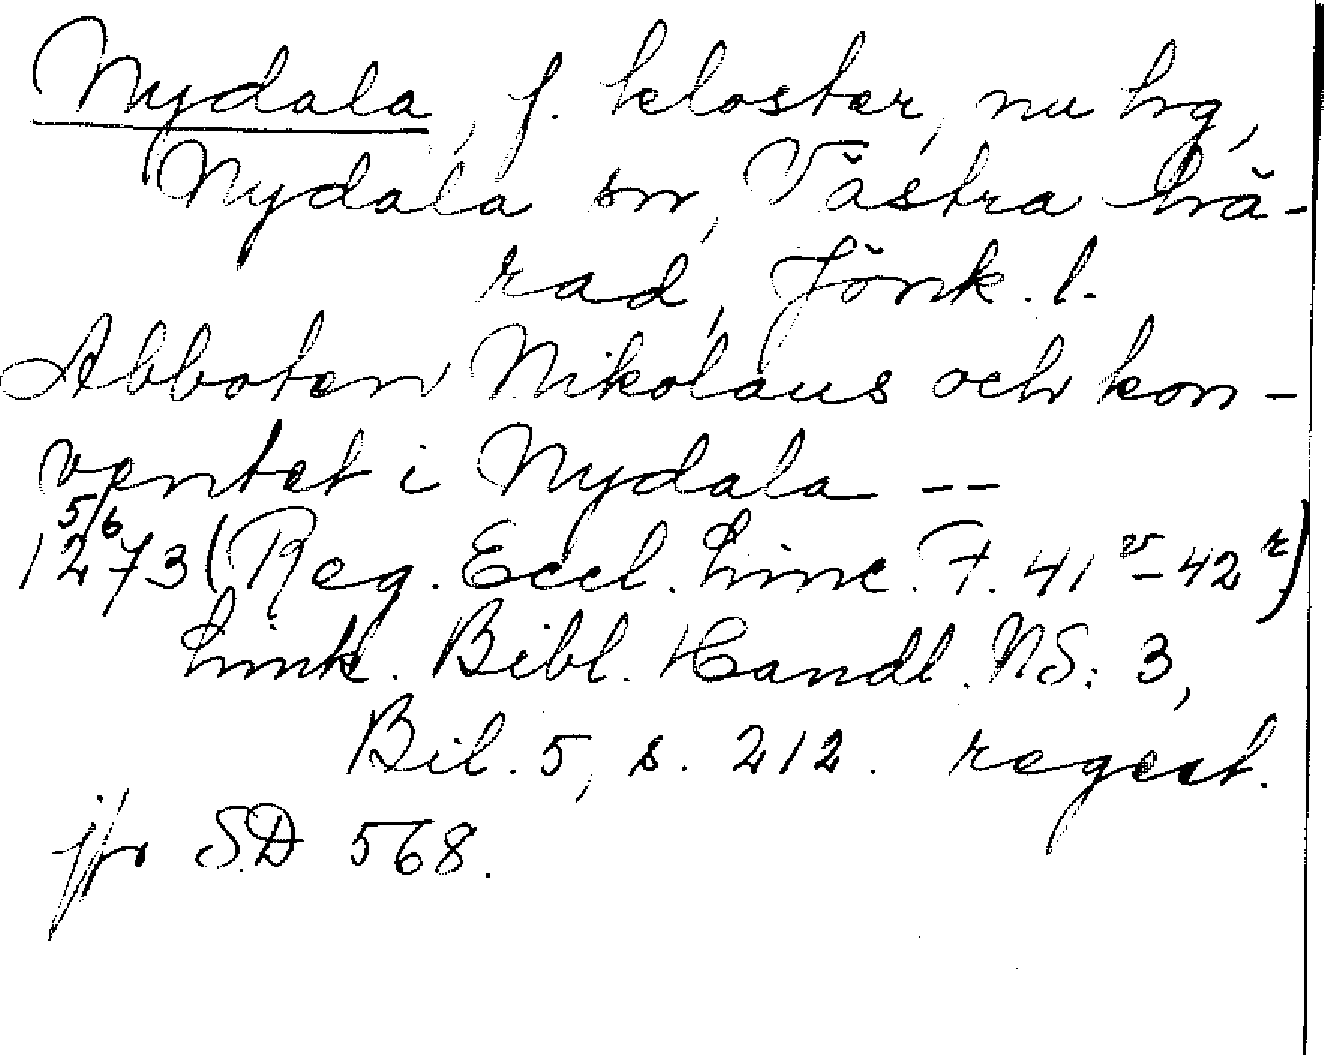 Nydala, f. kloster, nu hg,
Nydala sn, Västra hä-
rad, Jönk. l.
Abboten Nikolaus och kon-
ventet i Nydala --
5/6
1273 (Reg. Eccl. Linc. F. 41v-42r)
Link. Bibl. Handl. NS: 3,
Bil. 5, s. 212. regest.
jfr SD 568.